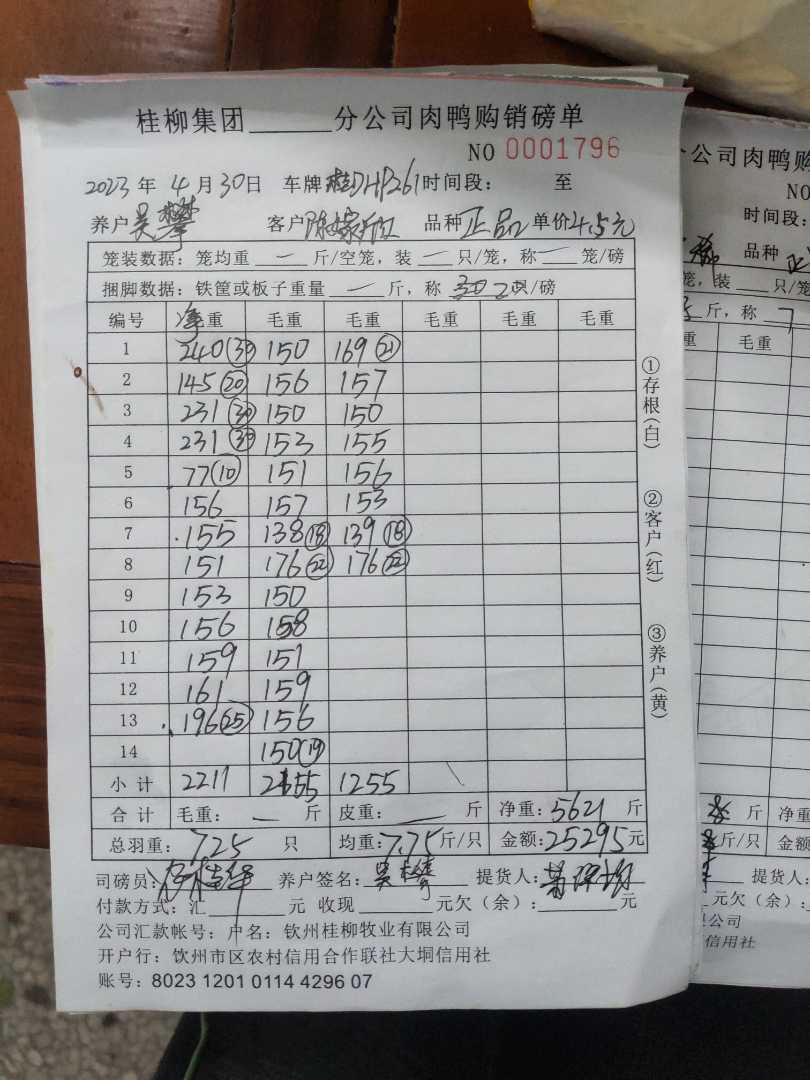 桂柳集团______分公司肉鸭购销磅单
NO 0001796
2023年 4月30日 车牌桂DHP261时间段: 至
养户吴攀 客户 品种正品 单价4.5元
笼装数据: 笼均重 — 斤/空笼, 装 — 只/笼, 称 — 笼/磅
捆脚数据: 铁筐或板子重量 — 斤, 称 20 只/磅
编号 净重 毛重 毛重 毛重 毛重 毛重
1 240(30) 150 169(21)
2 145(20) 156 157
3 231(30) 150 150
4 231(30) 153 155
5 77(10) 151 156
6 156 157 153
7 155 138(18) 139(18)
8 151 176(22) 176(22)
9 153 150
10 156 158
11 159 151
12 161 159
13 196(25) 156
14 150(19)
小计 2211 2155 1255
合计 毛重: — 斤 皮重: — 斤 净重: 5621 斤
总羽重: 725 只 均重: 7.75斤/只 金额: 25295元
司磅员: 养户签名: 吴攀 提货人:
付款方式: 汇______元 收现______元欠(余):______元
公司汇款帐号: 户名: 钦州桂柳牧业有限公司
开户行: 钦州市区农村信用合作联社大垌信用社
账号: 8023 1201 0114 4296 07
①存根(白)
②客户(红)
③养户(黄)
分公司肉鸭购销磅单
NO
时间段:
品种
笼, 装 只/笼
斤, 称
重 毛重
斤 净重
斤/只 金额
提货人:
元欠(余):
公司
信用社